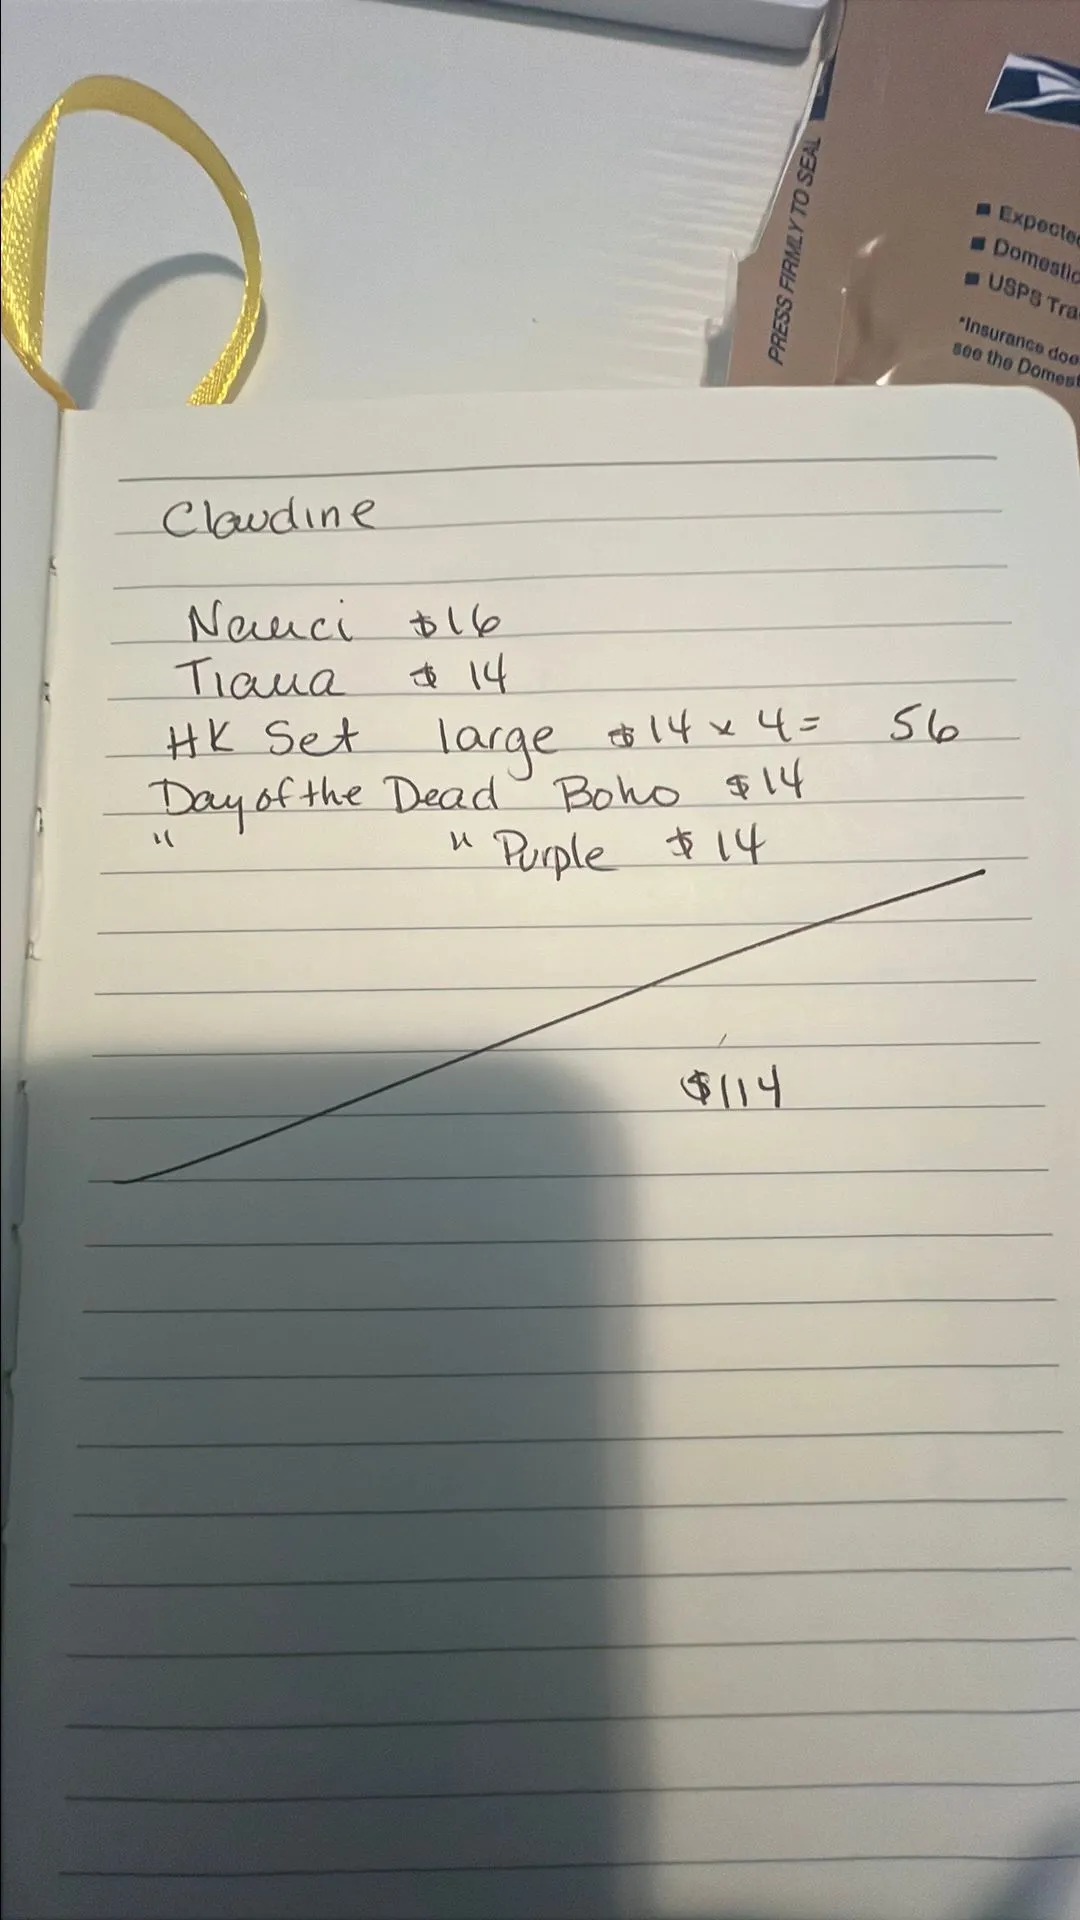 PRESS FIRMLY TO SEAL
Expected
Domestic
USPS Tra
*Insurance doe
see the Domest
Claudine
Nauci $16
Tiana $ 14
HK Set large $14 x 4 = 56
Day of the Dead Boho $14
" " Purple $ 14
$114